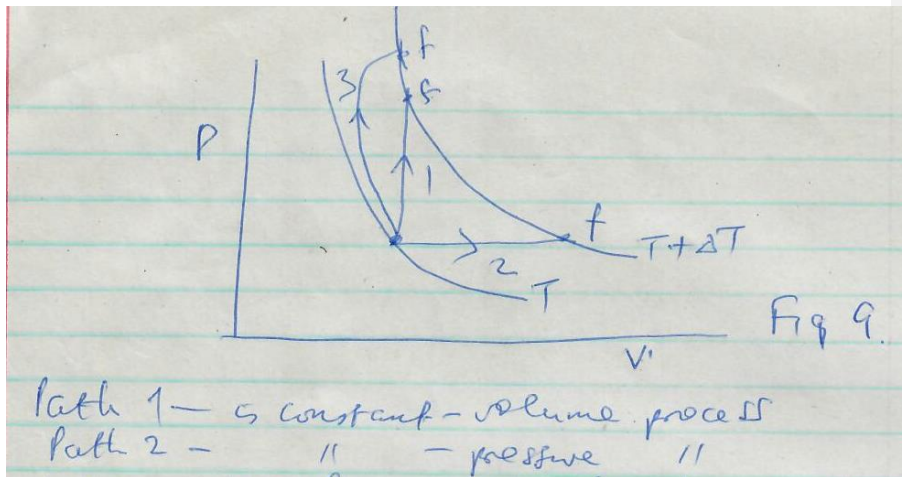 f
3
f
P
1
f
T + ΔT
2
T
Fig 9.
V
Path 1 — a constant - volume process
Path 2 - " - pressure "